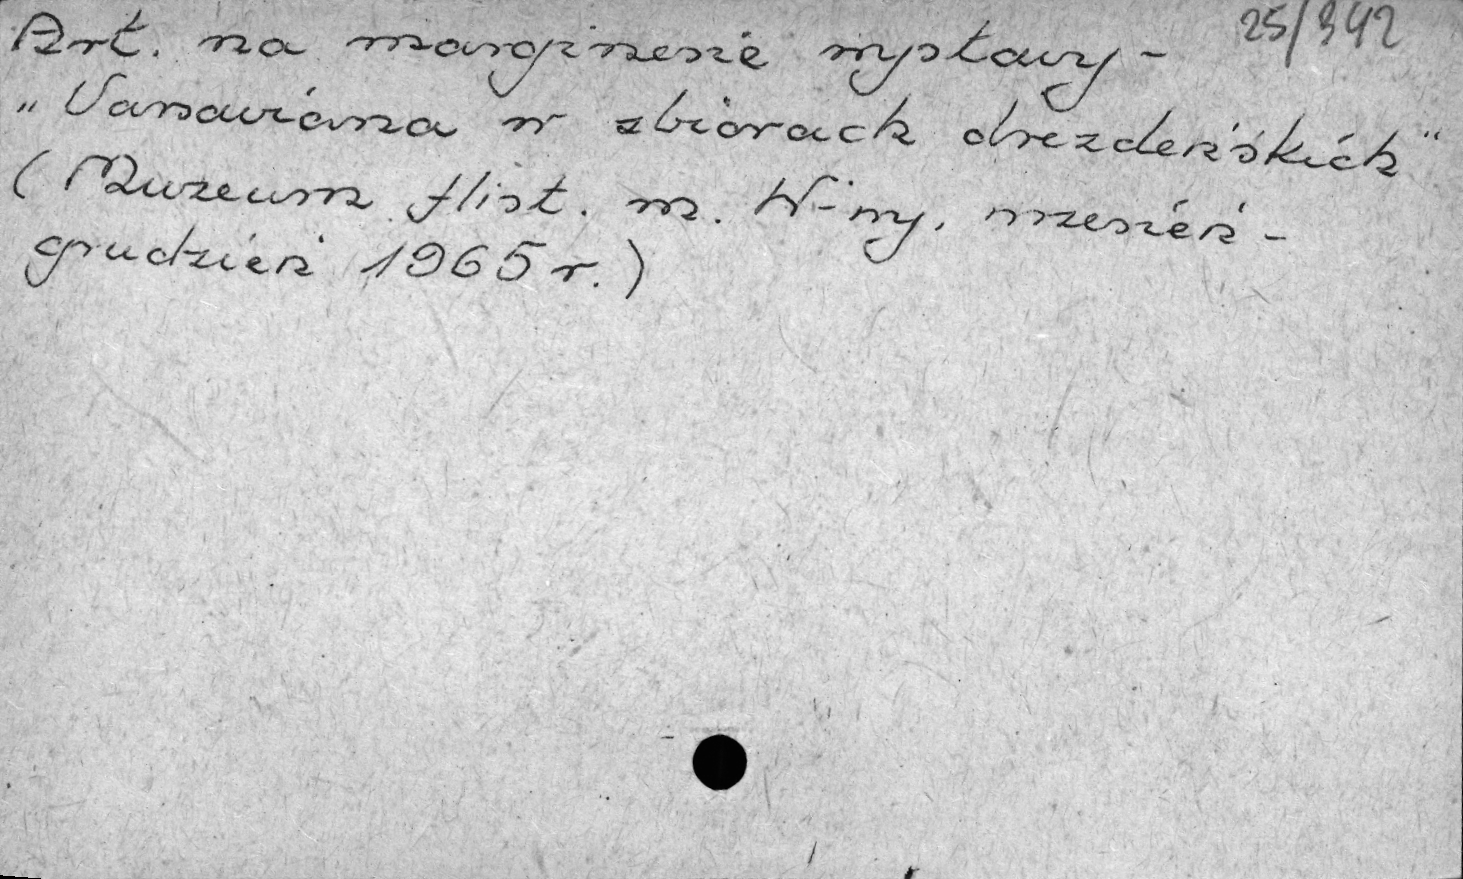 Art. na marginesie wystawy -
25/342
„Varsaviana w zbiorach drezdeńskich"
(Muzeum Hist. m. W-wy, wrzesień -
grudzień 1965 r.)